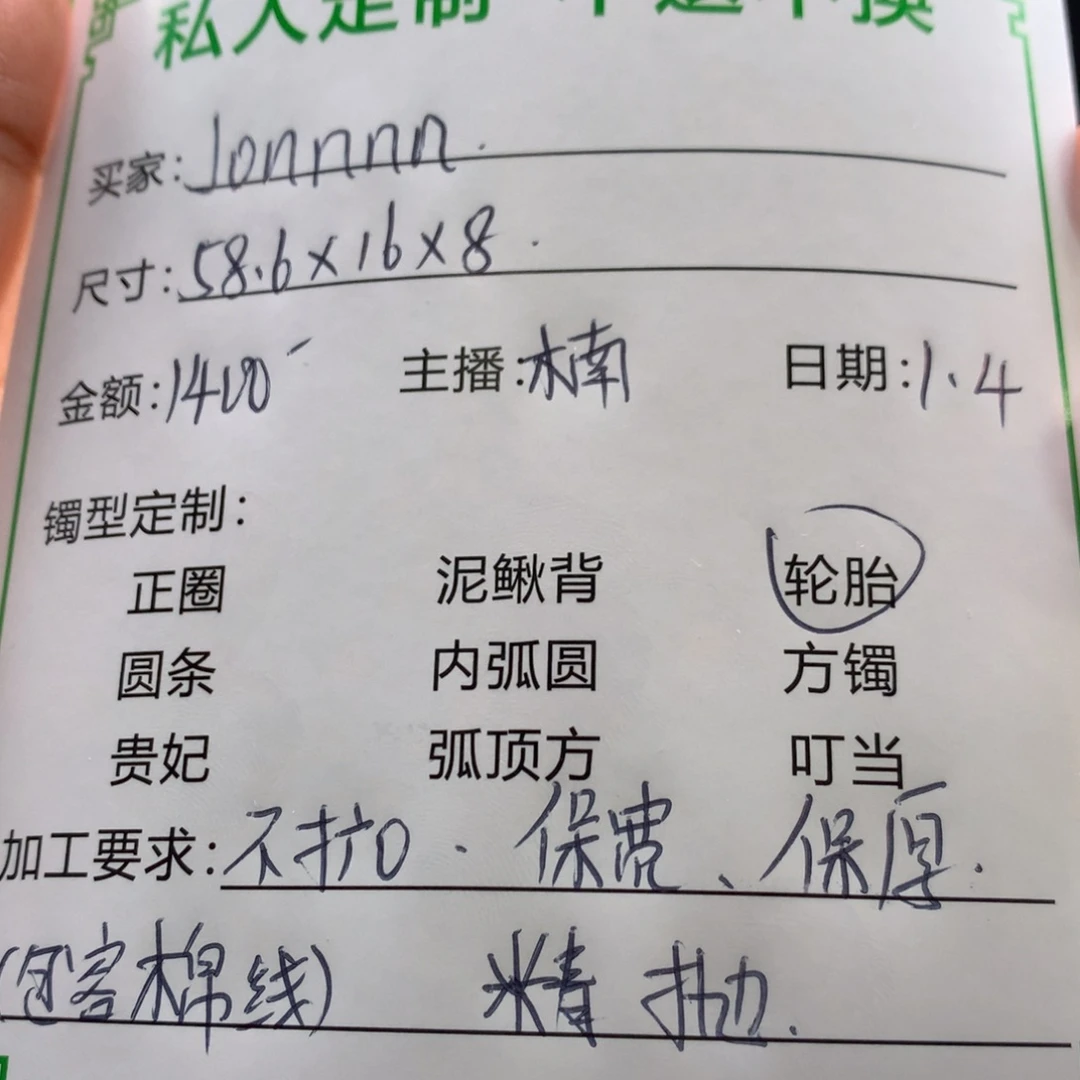 私人定制 不退不换
买家:Jonnnnn.
尺寸:58.6×16×8.
金额:1400 主播:楠 日期:1.4
镯型定制:
正圈 泥鳅背 轮胎
圆条 内弧圆 方镯
贵妃 弧顶方 叮当
加工要求:不扩口.保宽、保厚.
(包容棉线) 精抛.